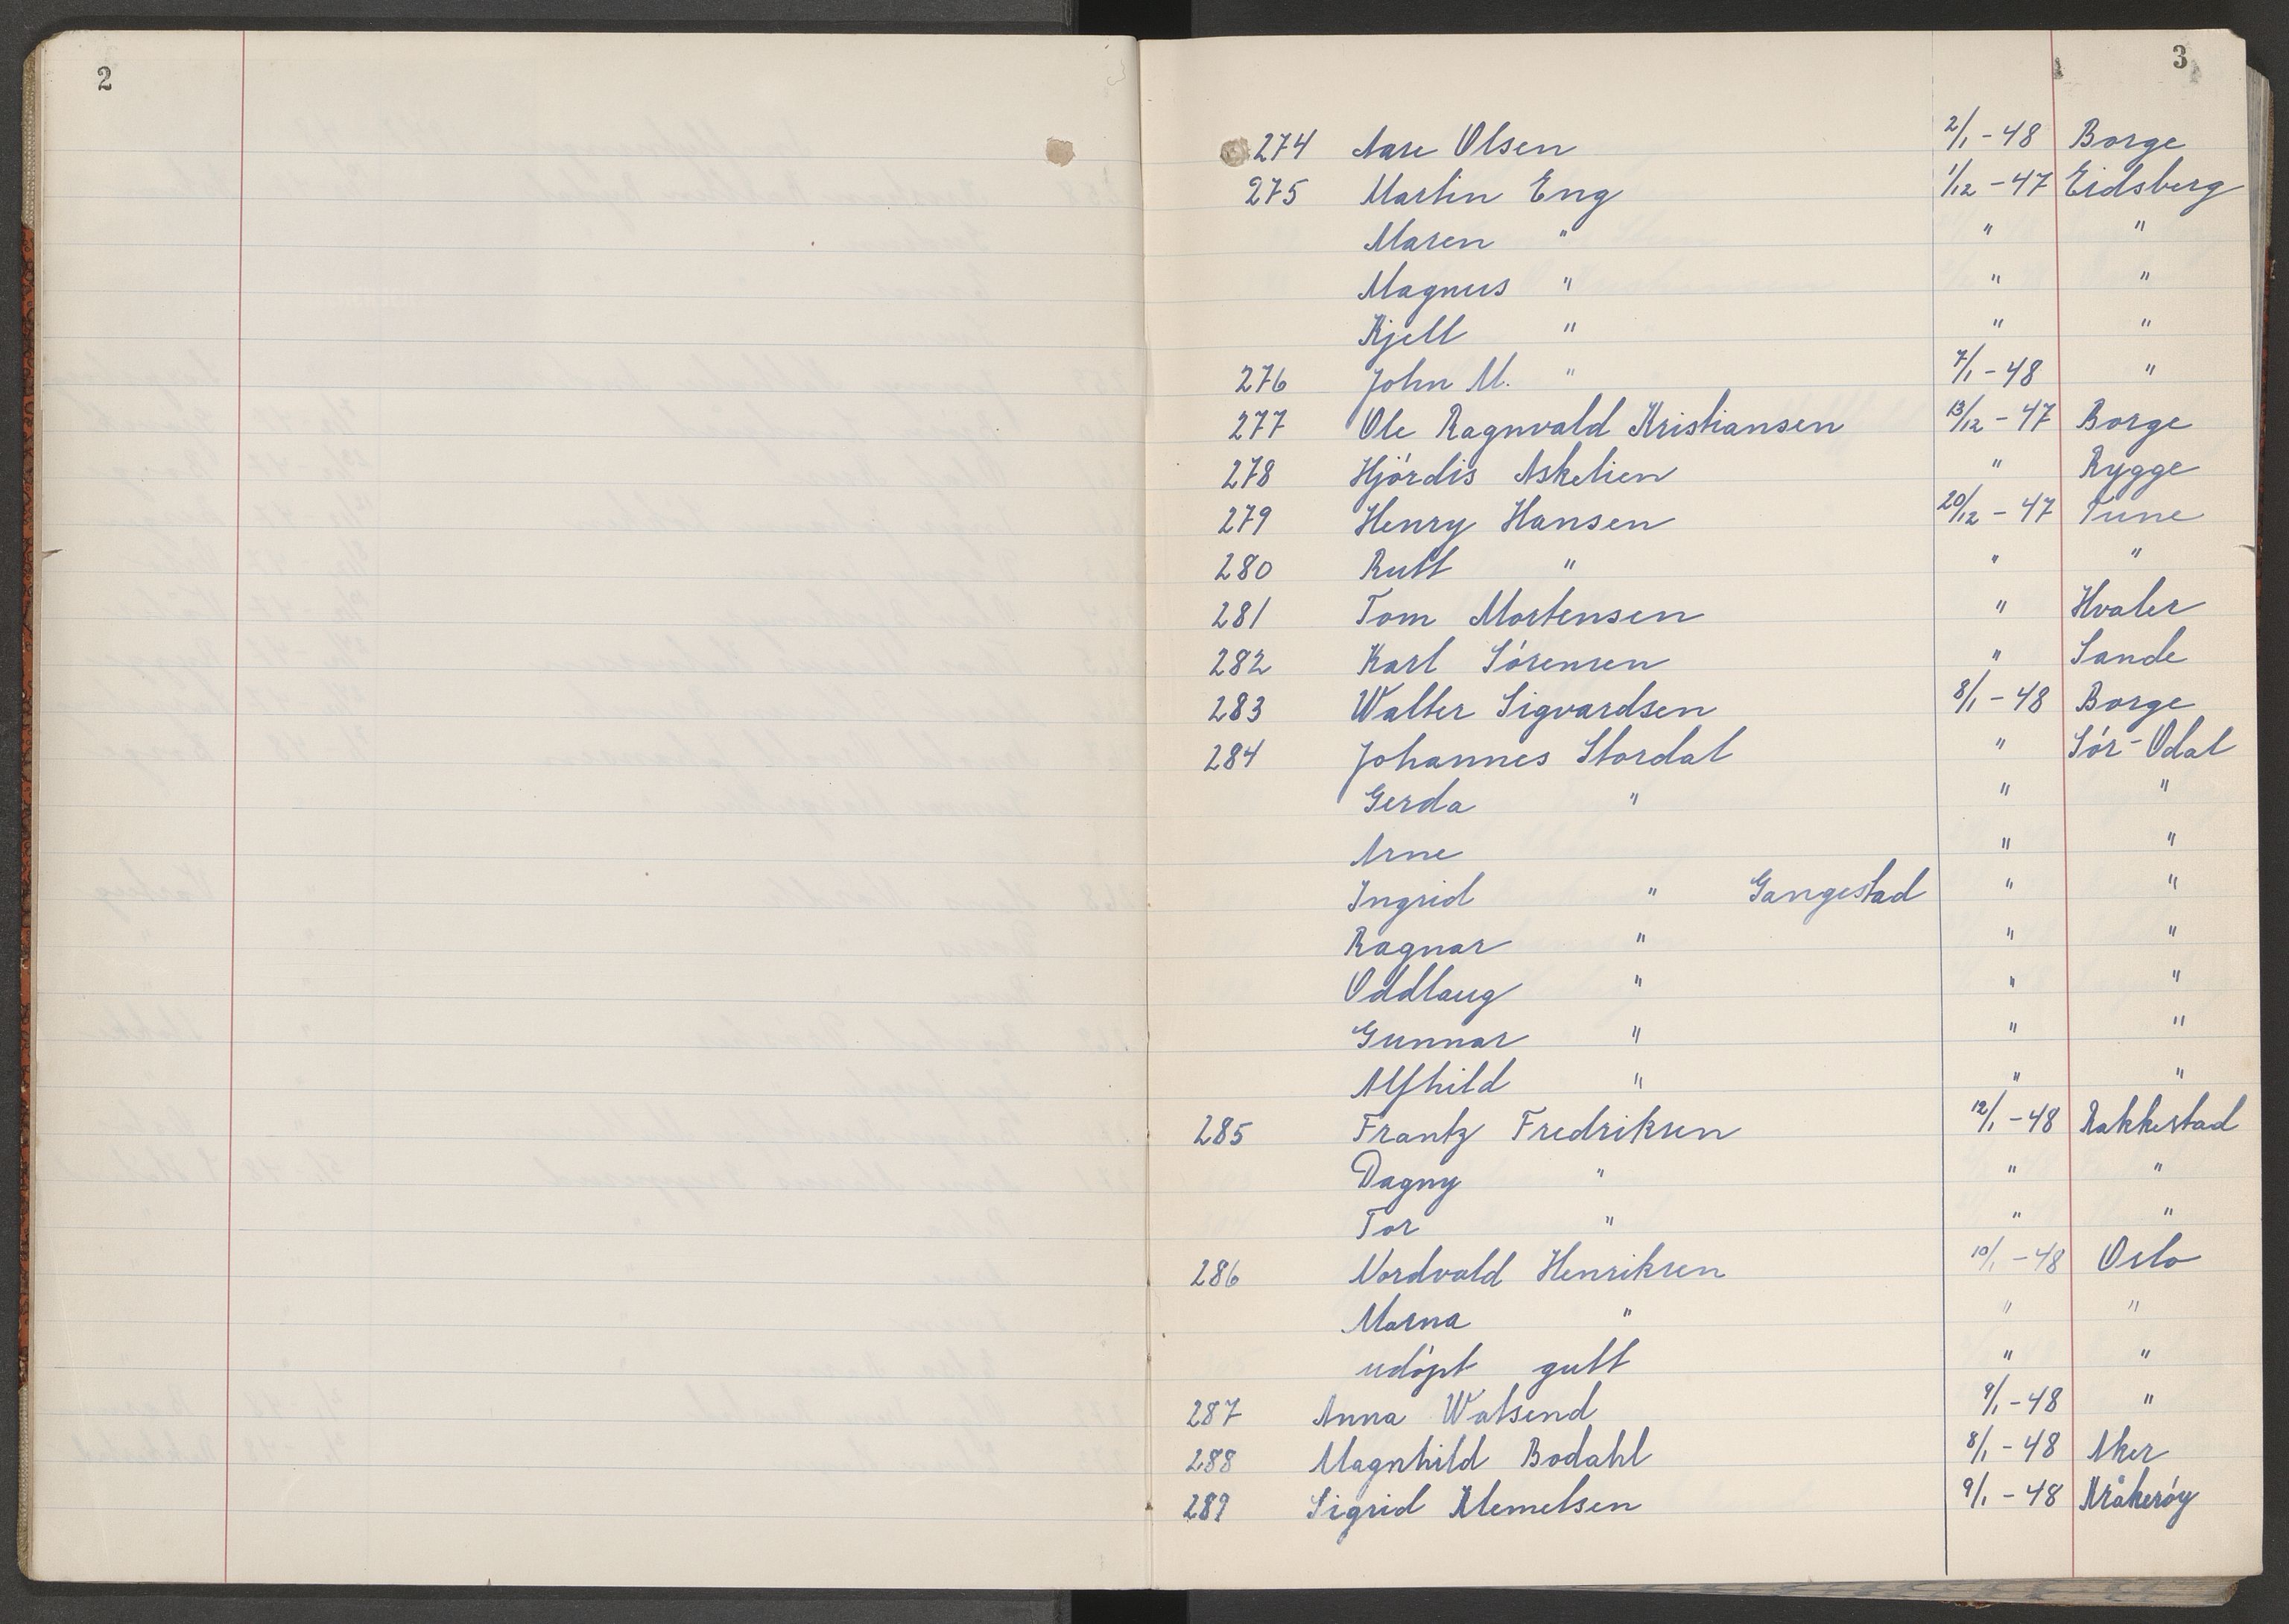 2
3
274 Aase Olsen 2/1 - 48 Borge
275 Martin Eng 1/12 - 47 Eidsberg
Maren " " "
Magnus " " "
Kjell " " "
276 John M. " 7/1 - 48 "
277 Ole Ragnvald Kristiansen 13/12 - 47 Borge
278 Hjórdis Askelien " Rygge
279 Henry Hansen 20/12 - 47 Tune
280 Rutt " " "
281 Tom Mortensen " Hvaler
282 Karl Sórensen " Sande
283 Walter Sigvardsen 8/1 - 48 Borge
284 Johannes Stordal " Sór-Odal
Gerda " " "
Arne " "
Ingrid " Gangestad " "
Ragnar " " "
Oddlaug " " "
Gunnar " " "
Alfhild " " "
285 Frantz Fredriksen 12/1 - 48 Rakkestad
Dagny " " "
Tor " " "
286 Nordvald Henriksen 10/1 - 48 Oslo
Marna " " "
udópt gutt " "
287 Anna Walsend 9/1 - 48 "
288 Magnhild Bodahl 8/1 - 48 Aker
289 Sigrid Klemetsen 9/1 - 48 Kråkeróy